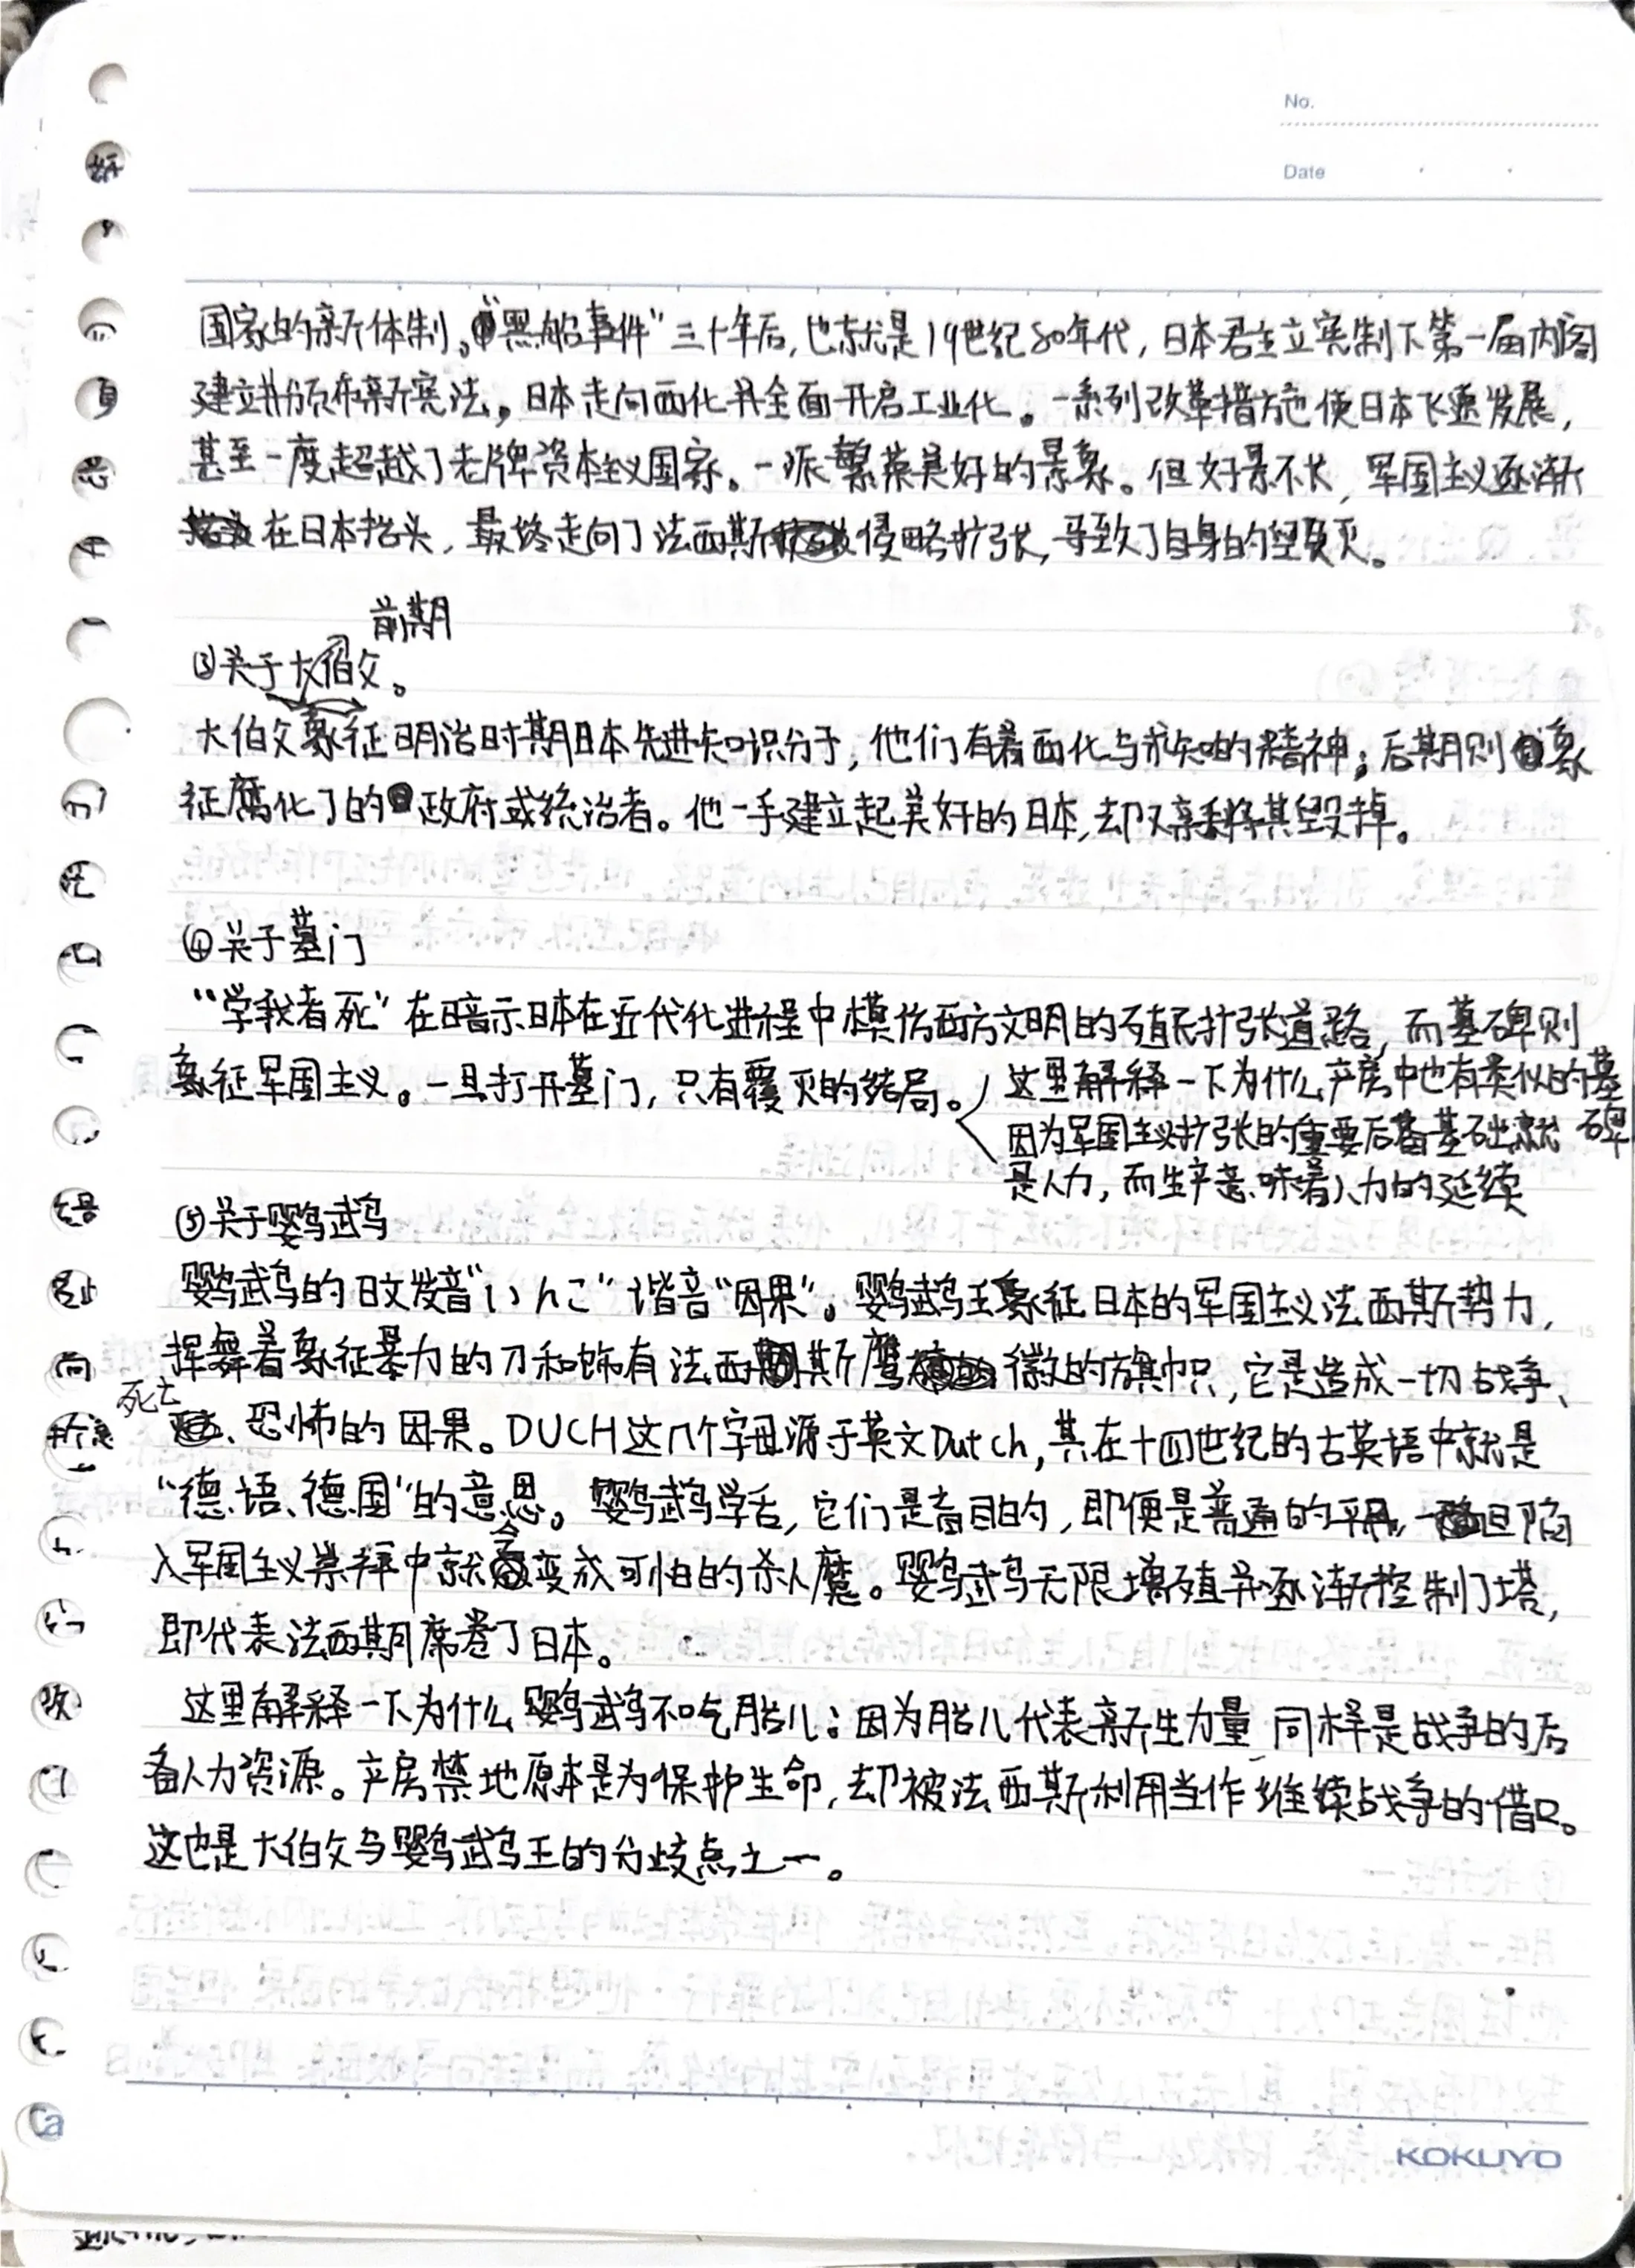 No.
Date
国家的新体制。“黑船事件”三十年后,也就是19世纪80年代,日本君主立宪制下第一届内阁
建立并颁布新宪法。日本走向西化并全面开启工业化。一系列改革措施使日本飞速发展,
甚至一度超越了老牌资本主义国家。一派繁荣美好的景象。但好景不长,军国主义逐渐
在日本抬头,最终走向了法西斯侵略扩张,导致了自身的毁灭。
前期
③关于大伯父。
大伯父象征明治时期日本先进知识分子,他们有着西化与求知的精神;后期则象
征腐化了的政府或统治者。他一手建立起美好的日本,却又亲手将其毁掉。
④关于墓门
“学我者死”在暗示日本在近代化进程中模仿西方文明的殖民扩张道路,而墓碑则
象征军国主义。一旦打开墓门,只有覆灭的结局。
这里解释一下为什么产房中也有类似的墓碑
因为军国主义扩张的重要后备基础就
是人力,而生产意味着人力的延续
⑤关于鹦鹉
鹦鹉的日文发音“いんこ”谐音“因果”。鹦鹉王象征日本的军国主义法西斯势力,
挥舞着象征暴力的刀和饰有法西斯鹰徽的旗帜,它是造成一切战争、
死亡、恐怖的因果。DUCH这几个字母源于英文Dutch,其在十四世纪的古英语中就是
“德语、德国”的意思。鹦鹉学舌,它们是盲目的,即便是普通的平民,一旦陷
入军国主义崇拜中就会变成可怕的杀人魔。鹦鹉无限增殖并逐渐控制了塔,
即代表法西期席卷了日本。
这里解释一下为什么鹦鹉不吃胎儿:因为胎儿代表新生力量,同样是战争的后
备人力资源。产房禁地原本是为保护生命,却被法西斯利用当作维续战争的借口。
这也是大伯父与鹦鹉王的分歧点之一。
KOKUYO